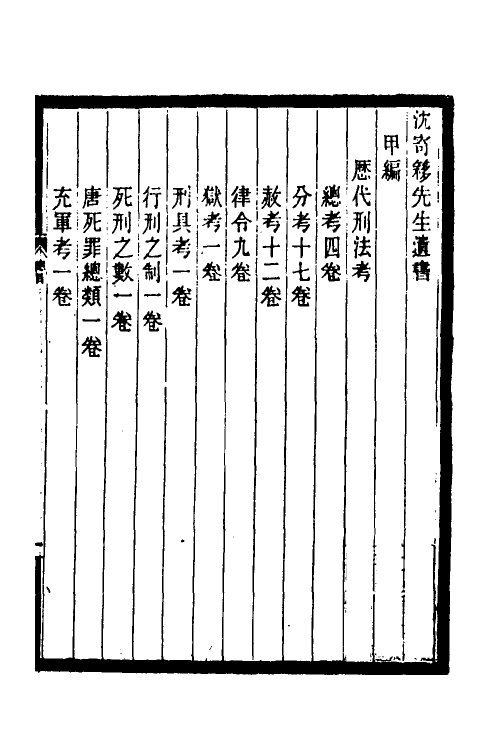 沈寄簃先生遺書
甲編
歷代刑法考
總考四卷
分考十七卷
赦考十二卷
律令九卷
獄考一卷
刑具考一卷
行刑之制一卷
死刑之數一卷
唐死罪總類一卷
充軍考一卷